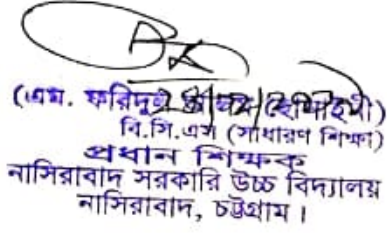 (এম. ফরিদুল
বি.সি.এস (সাধারণ শিক্ষা)
প্রধান শিক্ষক
নাসিরাবাদ সরকারি উচ্চ বিদ্যালয়
নাসিরাবাদ, চট্টগ্রাম।